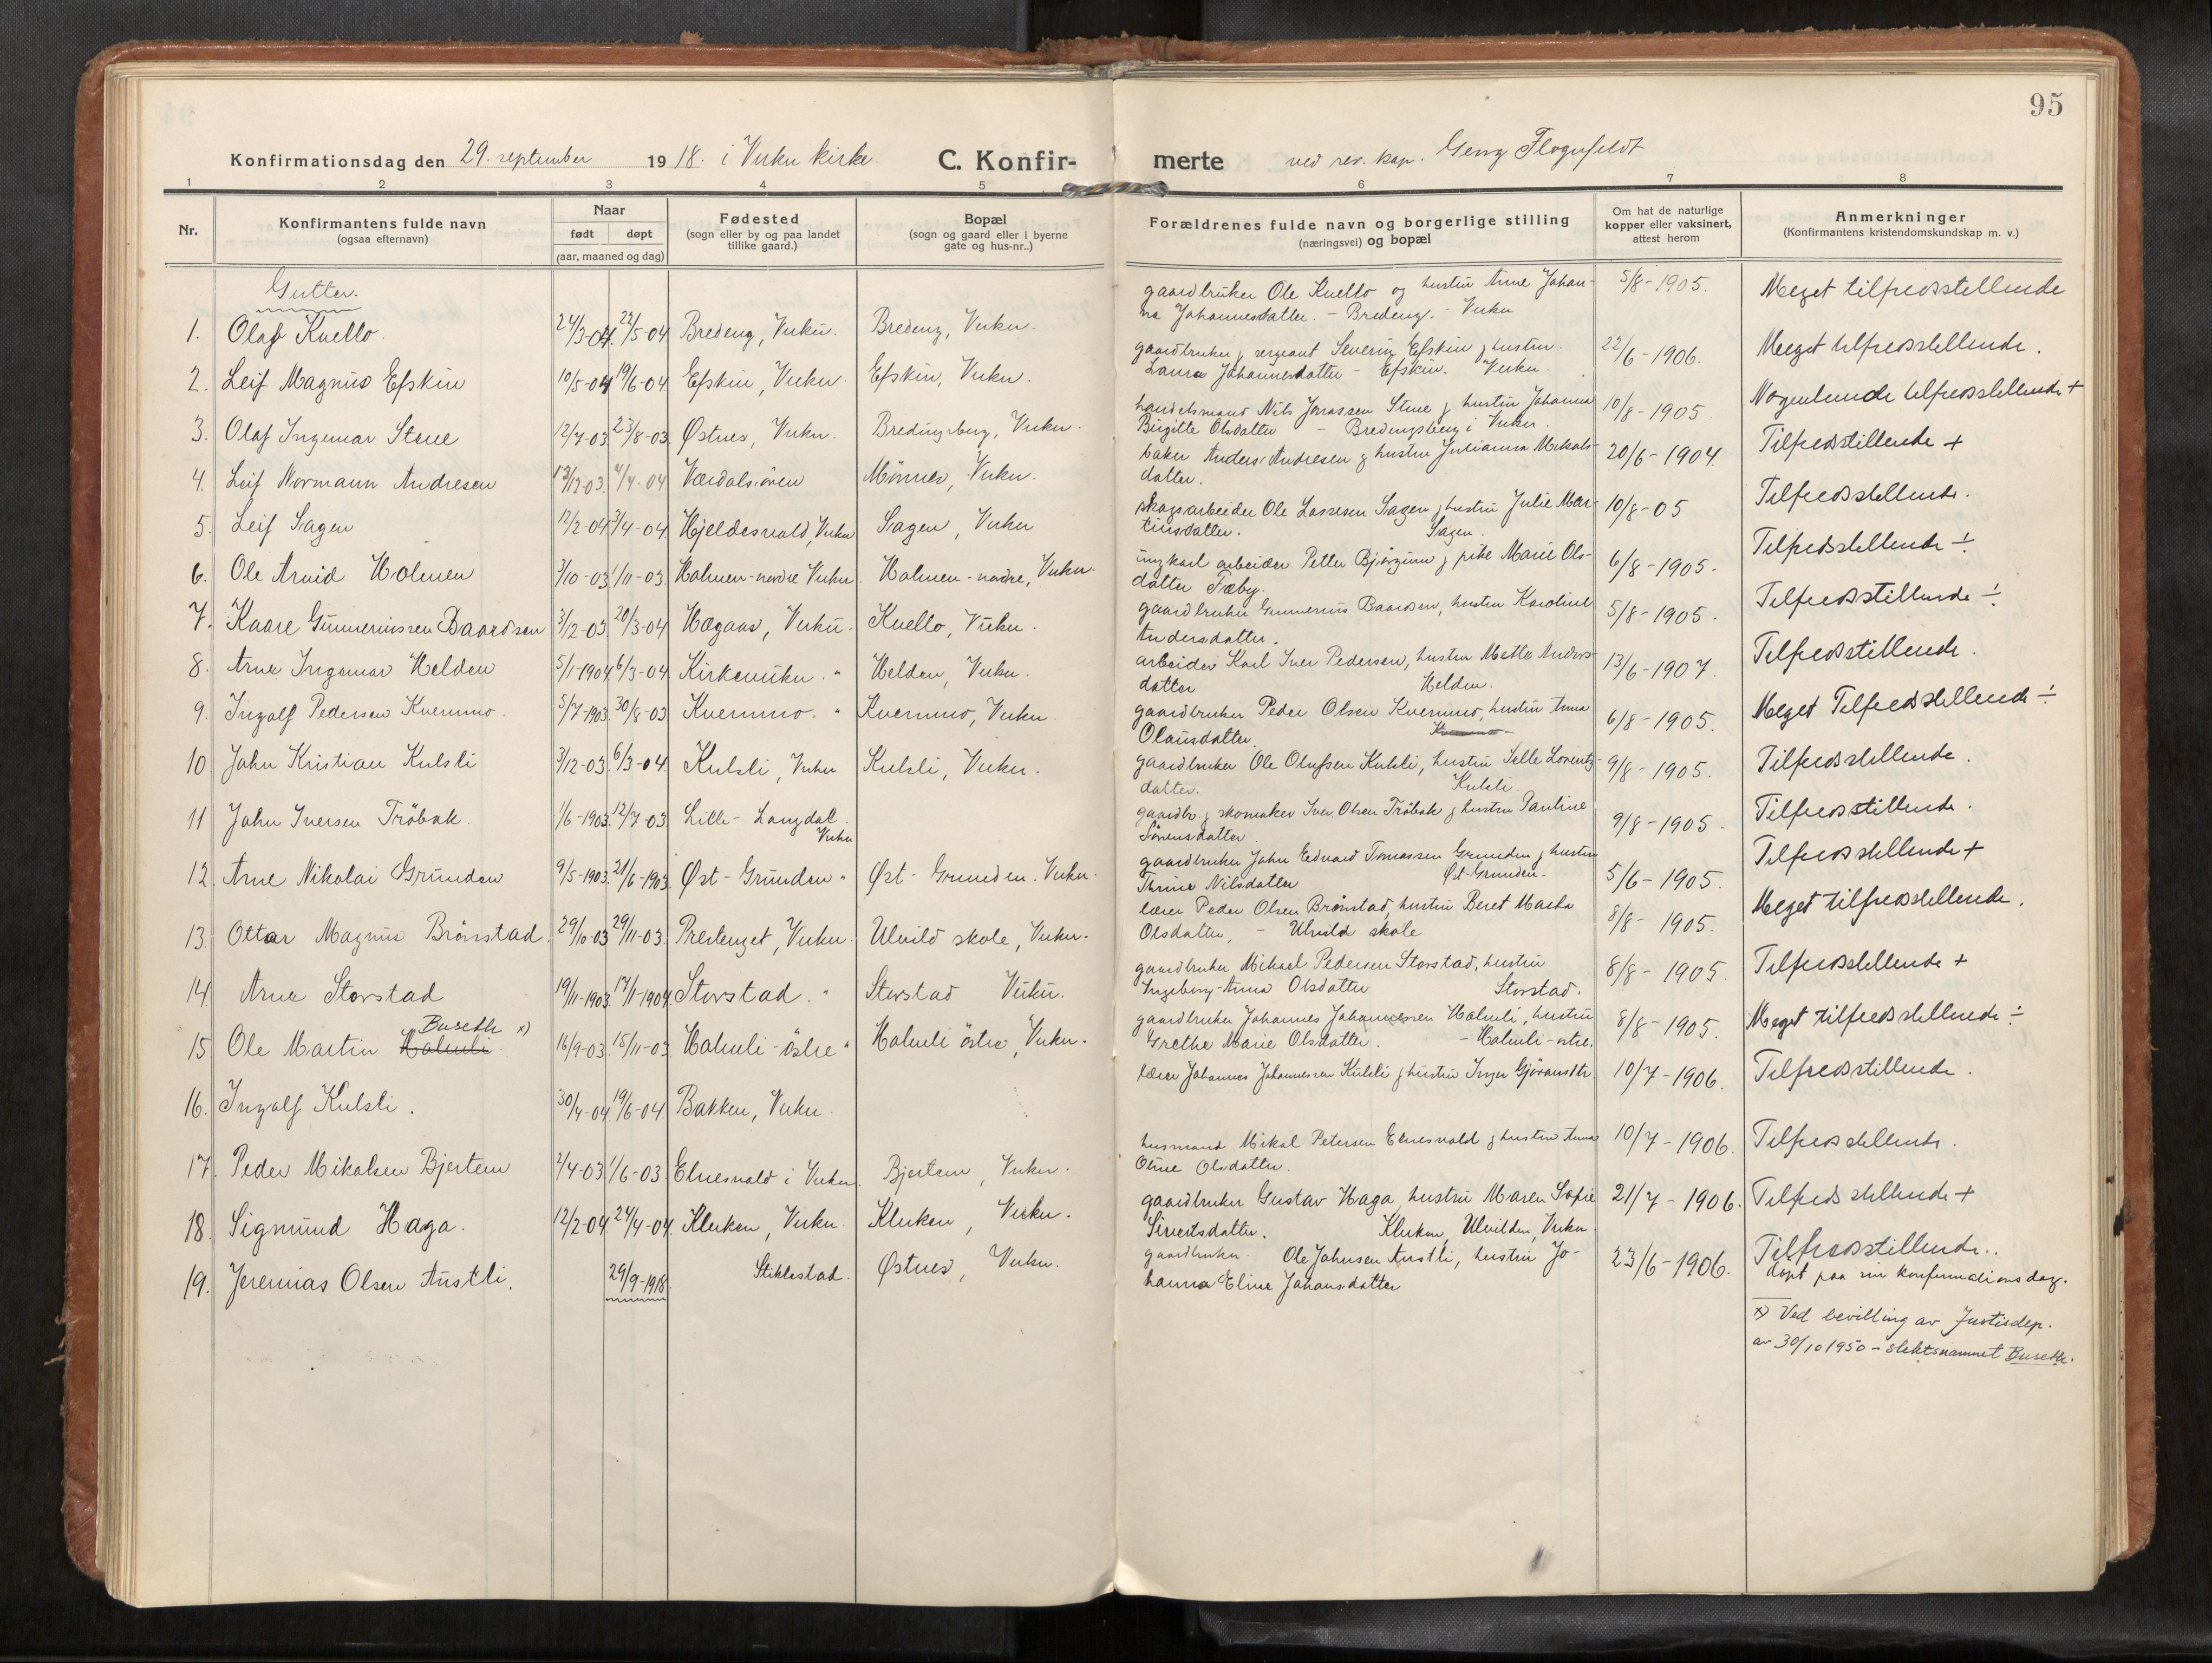 95
Konfirmationsdag den 29. september 1918. i Vuku kirke. C. Konfir-merte ved res. kap. Georg Flognfeldt
1 2 3 4 5 6 7 8
Nr. Konfirmantens fulde navn (ogsaa efternavn) Naar født døpt (aar, maaned og dag) Fødested (sogn eller by og paa landet tillike gaard.) Bopæl (sogn og gaard eller i byerne gate og hus-nr..) Forældrenes fulde navn og borgerlige stilling (næringsvei) og bopæl Om hat de naturlige kopper eller vaksinert, attest herom Anmerkninger (Konfirmantens kristendomskundskap m. v.)
Gutter.
1. Olaf Kvello. 24/3-04. 22/5-04 Bredeng, Vuku. Bredeng, Vuku. gaardbruker Ole Kvello og hustru Anne Johan- 5/8-1905. Meget tilfredsstellende
na Johannesdatter. - Bredeng. - Vuku
2. Leif Magnus Efskin 10/5-04 19/6-04 Efskin, Vuku. Efskin, Vuku. gaardbruker og sergeant Severin Efskin og hustru 22/6-1906. Meget tilfredsstellende.
Laura Johannesdatter - Efskin. Vuku.
3. Olaf Ingemar Stene 12/7-03 23/8-03 Østnes, Vuku. Bredingsberg, Vuku. handelsmand Nils Jonassen Stene og hustru Johanna 10/8-1905. Nogenlunde tilfredsstellende +
Birgitte Olsdatter - Bredingsberg i Vuku.
4. Leif Normann Andresen 13/12-03. 4/4-04 Værdalsøren Mønnes, Vuku. baker Anders Andresen og hustru Julianna Mikals- 20/6-1904. Tilfredsstillende +
datter.
5. Leif Sagen 12/2-04 3/4-04 Hjeldesvald, Vuku Sagen, Vuku skogsarbeider Ole Lassesen Sagen og hustru Julie Mar- 10/8-05 Tilfredsstellende.
tinsdatter. Sagen.
6. Ole Arvid Holmen 3/10-03 1/11-03 Holmen-nordre Vuku Holmen-nordre, Vuku. ungkarl arbeider Petter Bjørgum og pike Marie Ols- 6/8-1905. Tilfredsstellende ÷
datter Fæby.
7. Kaare Gunneriussen Baardsen 3/12-03 20/3-04 Hægaas, Vuku. Kvello, Vuku. gaardbruker Gunnerius Baardsen, hustru Karoline 5/8-1905. Tilfredsstillende ÷
Andersdatter.
8. Arne Ingemar Helden 5/1-1904 6/3-04 Kirkevuku. " Helden, Vuku. arbeider Karl Iver Pedersen, hustru Mette Anders- 13/6-1907. Tilfredsstillende.
datter Helden.
9. Ingolf Pedersen Kvernmo. 5/7-1903 30/8-03 Kvernmo. " Kvernmo, Vuku. gaardbruker Peder Olsen Kvernmo, hustru Anna 6/8-1905. Meget Tilfredsstellende ÷
Olausdatter.
10 John Kristian Kulsli 3/12-03. 6/3-04 Kulsli, Vuku Kulsli, Vuku. gaardbruker Ole Olufsen Kulsli, hustru Selle Lorents- 9/8-1905. Tilfredsstellende.
datter. Kulsli.
11 John Iversen Trøbak. 1/6-1903. 12/7-03 Lille-Langdal. Vuku gaardbr. og skomaker Iver Olsen Trøbak og hustru Pauline 9/8-1905. Tilfredsstillende.
Sørensdatter.
12. Arne Nikolai Grunden 9/5-1903 21/6-1903. Øst-Grunden " Øst-Grunden. Vuku. gaardbruker John Edvard Tomassen Grunden og hustru 5/6-1905. Tilfredsstellende +
Thrine Nilsdatter Øst-Grunden.
13. Ottar Magnus Brønstad. 29/10-03 29/11-03. Prestenget, Vuku. Ulvild skole, Vuku. lærer Peder Olsen Brønstad, hustru Beret Marta 8/8-1905. Meget tilfredsstellende.
Olsdatter, - Ulvild skole
14. Arne Storstad 19/11-1903 17/1-1904 Storstad. " Storstad Vuku. gaardbruker Mikael Pedersen Storstad, hustru 8/8-1905. Tilfredsstellende +
Ingeborg-Anna Olsdatter Storstad.
Buseth x)
15. Ole Martin Holmli. 16/9-03. 15/11-03. Holmli-østre " Holmli østre, Vuku. gaardbruker Johannes Johannessen Holmli, hustru 8/8-1905. Meget tilfredsstellende ÷
Grethe Marie Olsdatter. - Holmli-østre.
16. Ingolf Kulsli. 30/4-04 19/6-04 Bakken, Vuku. lærer Johannes Johannessen Kulsli og hustru Inger Gjøransdtr. 10/7-1906. Tilfredsstillende.
17. Peder Mikalsen Bjertem 2/4-03. 1/6-03. Elnesvald i Vuku. Bjertem, Vuku. husmand Mikal Petersen Elnesvald og hustru Anna 10/7-1906. Tilfredsstellende.
Oline Olsdatter.
18. Sigmund Haga. 12/2-04. 24/4-04. Kluken, Vuku. Kluken, Vuku. gaardbruker Gustav Haga, hustru Maren Sofie 21/7-1906. Tilfredsstellende +
Sivertsdatter. Kluken, Ulvilden, Vuku.
19. Jeremias Olsen Austli. 29/9-1918. Stiklestad. Østnes, Vuku. gaardbruker Ole Johnsen Austli, hustru Jo- 23/6-1906. Tilfredsstillende..
hanna Eline Johansdatter døpt paa sin konfirmationsdag.
x) Ved bevilling av Justisdep.
av 30/10 1950 - slektsnamnet Buseth.